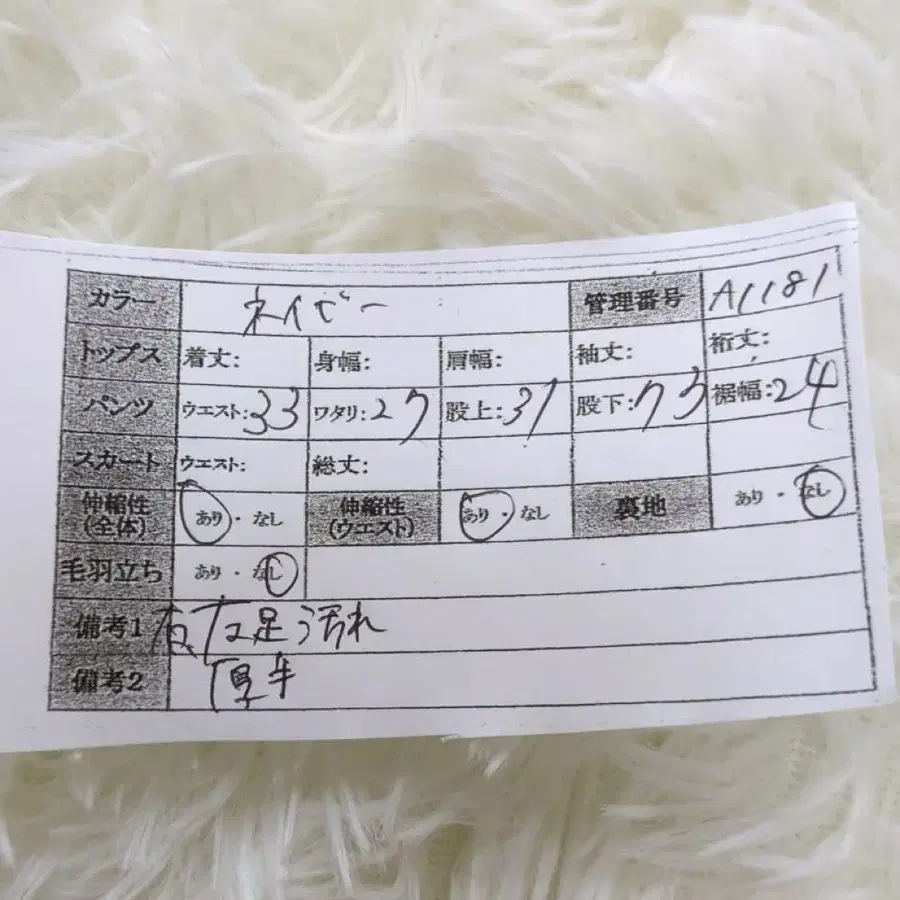 カラー ネイビー 管理番号 A1181
トップス 着丈: 身幅: 肩幅: 袖丈: 裄丈:
パンツ ウエスト:33 ワタリ:27 股上:31 股下:73 裾幅:24
スカート ウエスト: 総丈:
伸縮性(全体) あり・なし 伸縮性(ウエスト) あり・なし 裏地 あり・なし
毛羽立ち あり・なし
備考1 左足 汚れ
備考2 厚手